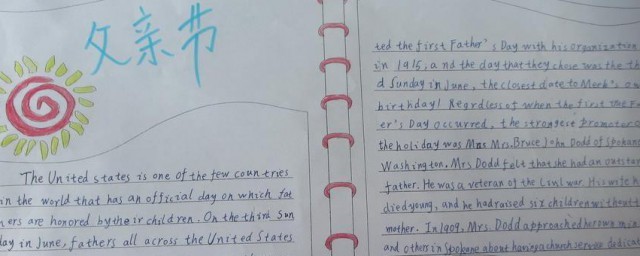 父亲节
The United states is one of the few countries
in the world that has an official day on which fat
hers are honored by their children. On the third Sun
day in June, fathers all across the United States
ted the first Father's Day with his organization
in 1915, and the day that they chose was the th
d Sunday in June, the closest date to Meek's o
birthday! Regrdless of when the first
er's Day occurred, the strongest promoter o
the holiday was Mrs. Bruce John Dodd of Spokan
Washington. Mrs Dodd felt that she had an outstan
father. He was a veteran of the Civil war. His wife h
died young, and he had raised six children without t
mother. In 1909, Mrs. Dodd approached her own min
and others in Spokane about having a church service dedicat